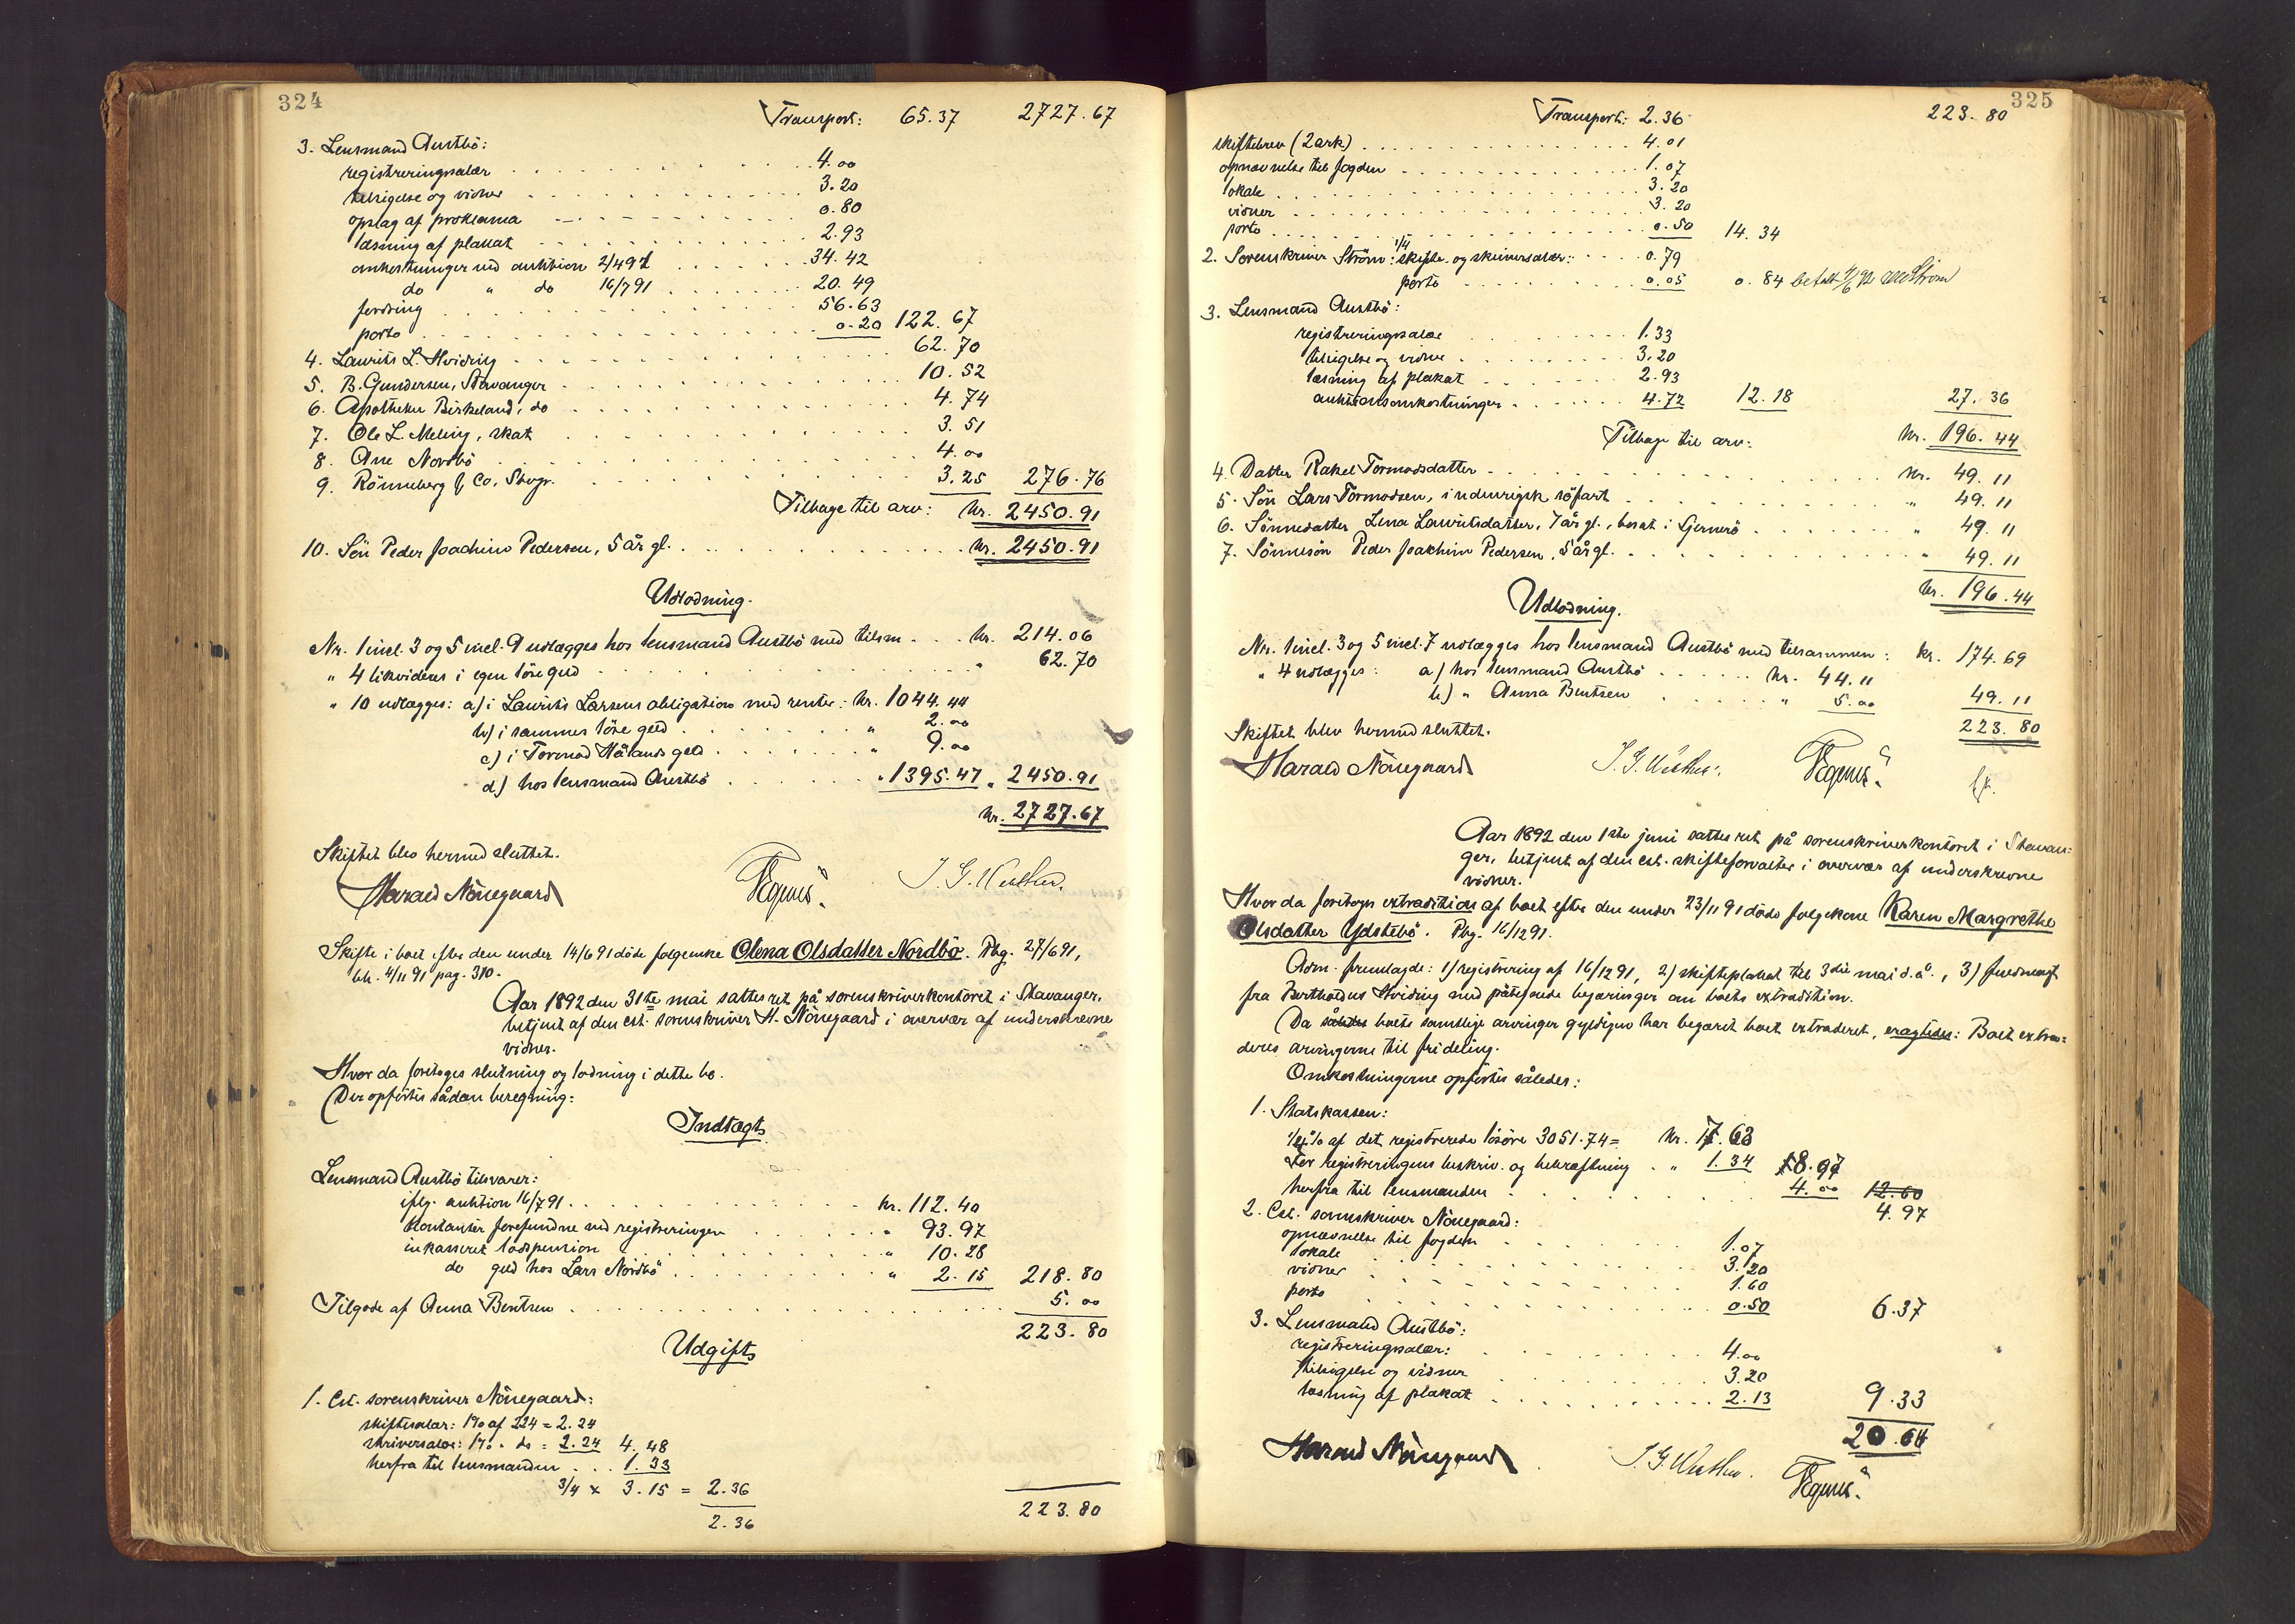 324
Transport: 65.37 2727.67
3. Lensmand Austbö:
registreringssalær . . . 4.00
tilsigelse og vidner . . . 3.20
opslag af proklama . . . 0.80
læsning af plakat . . . 2.93
omkostninger ved auktion 2/491 . . . 34.42
do " do 16/791 . . . 20.49
fordring . . . 56.63
porto . . . 0.20 122.67
4. Laurits L. Hviding . . . 62.70
5. B. Gundersen, Stavanger . . . 10.52
6. Apotheker Birkeland, do . . . 4.74
7. Ole L. Meling, skat . . . 3.51
8. Ane Nordbö . . . 4.00
9. Rönneberg & Co, Stvgr. . . . 3.25 276.76
Tilbage til arv: kr. 2450.91
10. Sön Peder Joachim Pedersen, 5 år gl. . . . kr. 2450.91
Udlodning.
Nr. 1 incl. 3 og 5 incl. 9 udlægges hos lensmand Austbö med tilsm. . . kr. 214.06
" 4 likvideres i egen löse gjeld . . . " 62.70
" 10 udlægges: a) i Laurits Larsens obligation med renter: kr. 1044.44
b) i sammes löse gjeld . . . " 2.00
c) i Tormod Hålands gjeld . . . " 9.00
d) hos lensmand Austbö . . . " 1395.47 " 2450.91
kr. 2727.67
Skiftet blev hermed sluttet.
Harald Nörregaard
J. G. Wæthre.
Skifte i boet efter den under 14/6 91 döde folgeenke Olena Olsdatter Nordbö. Pbg. 27/6 91,
bh. 4/11 91 pag. 310.
Aar 1892 den 31te mai sattes ret på sorenskriverkontoret i Stavanger,
betjent af den cst. sorenskriver H. Nörregaard i overvær af underskrevne
vidner.
Hvor da foretoges slutning og lodning i dette bo.
Der opförtes sådan beregning:
Indtægt
Lensmand Austbö tilsvarer:
iflg. auktion 16/791 . . . kr. 112.40
Kontanter forefundne ved registreringen . . . " 93.97
inkasseret lodspension . . . " 10.28
do gjeld hos Lars Nordbö . . . " 2.15 218.80
Tilgode af Anna Bentsen . . . 5.00
223.80
Udgift
1. Cst. sorenskriver Nörregaard:
skiftesalær: 1% af 224 = 2.24
skriversalær: 1% " do = 2.24 4.48
herfra til lensmanden . . . 1.33
3/4 x 3.15 = 2.36
2.36 223.80
325
Transport: 2.36 223.80
skiftebrev (2 ark) . . . 4.01
opnævnelse til fogden . . . 1.07
lokale . . . 3.20
vidner . . . 3.20
porto . . . 0.50 14.34
2. Sorenskriver Ström: 1/4 skifte- og skriversalær: . . . 0.79
porto . . . 0.05 0.84 betalt
3. Lensmand Austbö:
registreringssalær . . . 1.33
tilsigelse og vidner . . . 3.20
læsning af plakat . . . 2.93
auktionsomkostninger . . . 4.72 12.18 27.36
Tilbage til arv: kr. 196.44
4. Datter Rakel Tormodsdatter . . . kr. 49.11
5. Sön Lars Tormodsen, i udenrigsk söfart . . . " 49.11
6. Sönnedatter Lena Lauritsdatter, 7 år gl., bosat i . . . " 49.11
7. Sönnesön Peder Joachim Pedersen, 5 år gl. . . . " 49.11
kr. 196.44
Udlodning.
Nr. 1 incl. 3 og 5 incl. 7 udlægges hos lensmand Austbö med tilsammen: kr. 174.69
" 4 udlægges: a) hos lensmand Austbö . . . kr. 44.11
b) " Anna Bentsen . . . " 5.00 49.11
223.80
Skiftet blev hermed sluttet.
Harald Nörregaard
J. G. Wæthre.
Aar 1892 den 1ste juni sattes ret på sorenskriverkontoret i Stavan-
ger, betjent af den cst. skifteforvalter i overvær af underskrevne
vidner.
Hvor da foretoges extradition af boet efter den under 23/11 91 döde folgekone Karen Margrethe
Olsdatter Ydstebö. Pbg. 16/12 91.
Adm. fremlagde: 1) registrering af 16/12 91, 2) skifteplakat til 3die mai d.å., 3) fuldmagt
fra Bertheus Hviding med påtegnede begæringer om boets extradition.
Da således boets samtlige arvinger gyldigen har begæret boet extraderet, eragtedes: Boet extra-
deres arvingerne til frideling.
Omkostningerne opförtes således:
1. Statskassen:
% af det registrerede lösöre 3051.74 = kr. 17.63
For registreringens beskriv. og bekræftning . " 1.34 18.97
herfra til lensmanden . . . 4.00 12.60
4.97
2. Cst. sorenskriver Nörregaard:
opnævnelse til fogden . . . 1.07
lokale . . . 3.20
vidner . . . 1.60
porto . . . 0.50 6.37
3. Lensmand Austbö:
registreringssalær: . . . 4.00
tilsigelse og vidner . . . 3.20
læsning af plakat . . . 2.13 9.33
20.64
Harald Nörregaard
J. G. Wæthre.